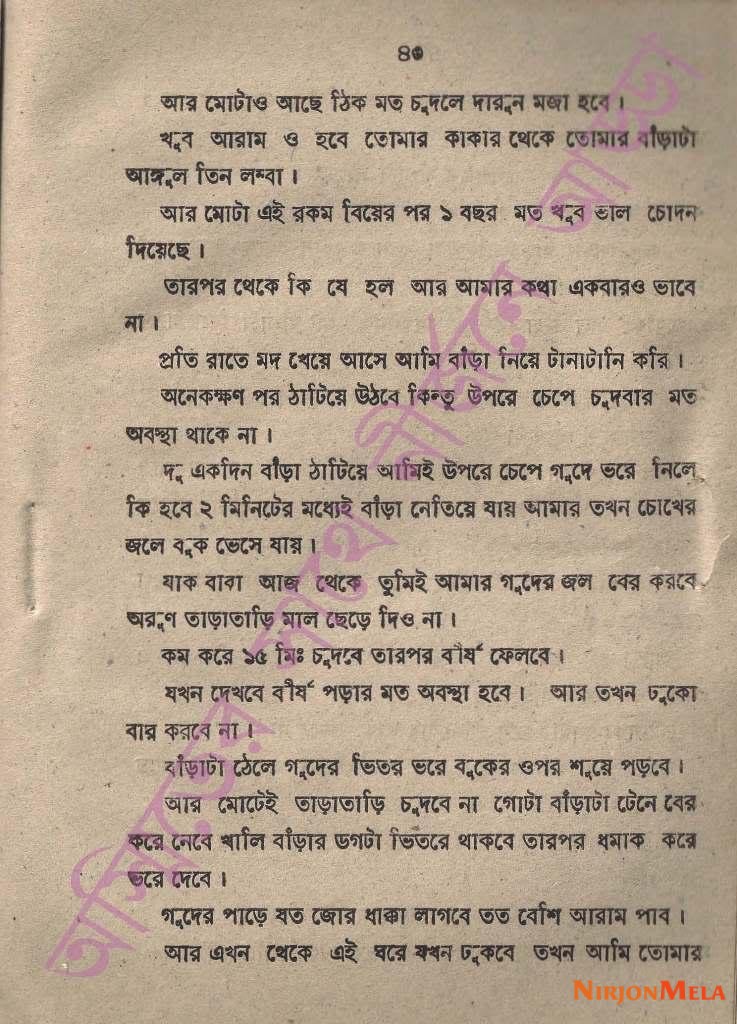 ৪৩
আর মোটাও আছে ঠিক মত চুদলে দারুন মজা হবে।
খুব আরাম ও হবে তোমার কাকার থেকে তোমার বাঁড়াটা
আঙ্গুল তিন লম্বা।
আর মোটা এই রকম বিয়ের পর ১ বছর মত খুব ভাল চোদন
দিয়েছে।
তারপর থেকে কি যে হল আর আমার কথা একবারও ভাবে
না।
প্রতি রাতে মদ খেয়ে আসে আমি বাঁড়া নিয়ে টানাটানি করি।
অনেকক্ষণ পর ঠাটিয়ে উঠবে কিন্তু উপরে চেপে চুদবার মত
অবস্থা থাকে না।
দু একদিন বাঁড়া ঠাটিয়ে আমিই উপরে চেপে গুদে ভরে নিলে
কি হবে ২ মিনিটের মধ্যেই বাঁড়া নেতিয়ে যায় আমার তখন চোখের
জলে বুক ভেসে যায়।
যাক বাবা আজ থেকে তুমিই আমার গুদের জল বের করবে
অরুণ তাড়াতাড়ি মাল ছেড়ে দিও না।
কম করে ১৫ মিঃ চুদবে তারপর বীর্য ফেলবে।
যখন দেখবে বীর্য পড়ার মত অবস্থা হবে। আর তখন ঢুকো
বার করবে না।
বাঁড়াটা ঠেলে গুদের ভিতর ভরে বুকের ওপর শুয়ে পড়বে।
আর মোটেই তাড়াতাড়ি চুদবে না গোটা বাঁড়াটা টেনে বের
করে নেবে খালি বাঁড়ার ডগটা ভিতরে থাকবে তারপর ধমাক করে
ভরে দেবে।
গুদের পাড়ে যত জোর ধাক্কা লাগবে তত বেশি আরাম পাব।
আর এখন থেকে এই ঘরে যখন ঢুকবে তখন আমি তোমার
অস্থিতের পথে নীর্জনে আড্ডা
NIRJONMELA